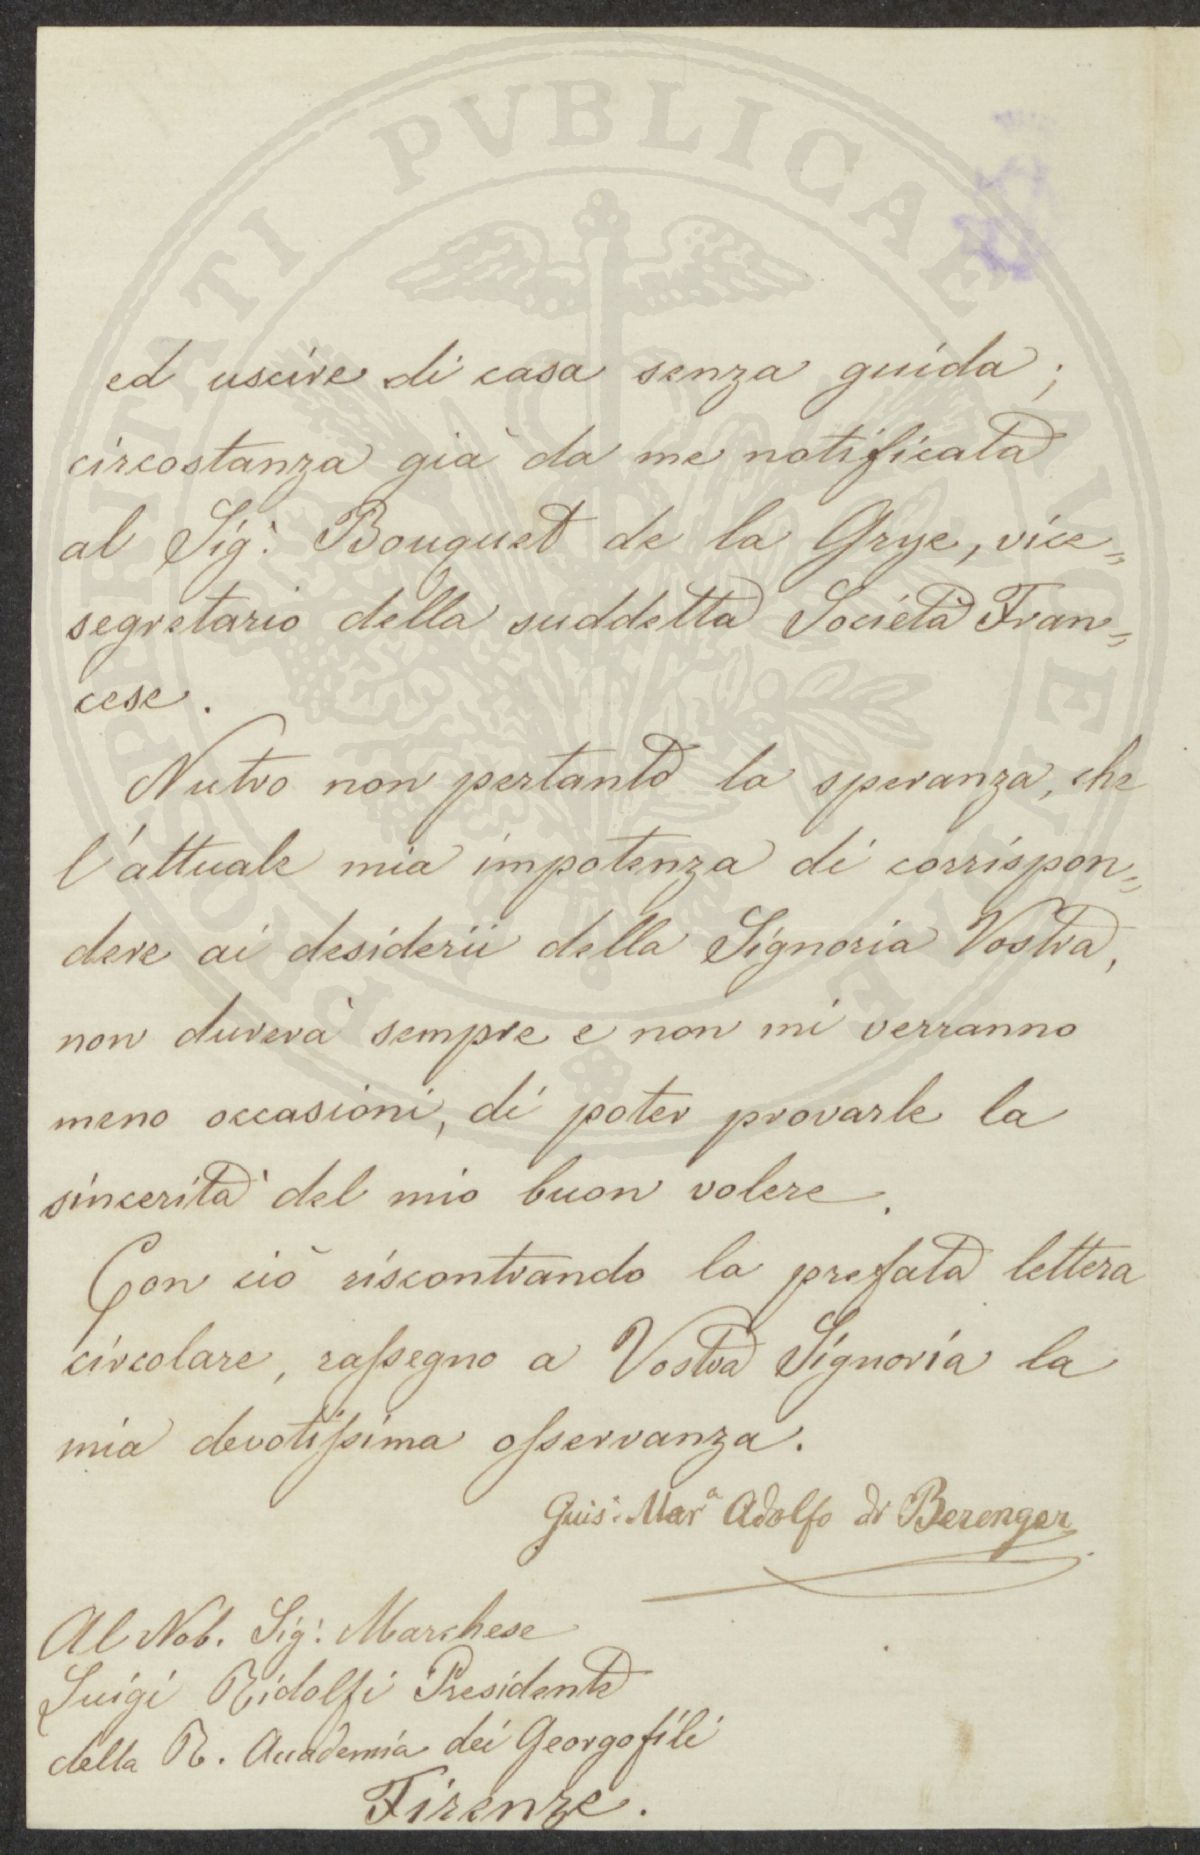 PROSPERITATI PVBLICAE AVGENDAE
ed uscire di casa senza guida;
circostanza già da me notificata
al Sigr. Bouquet de la Grye, vice-
segretario della suddetta Società Fran-
cese.
Nutro non pertanto la speranza, che
l'attuale mia impotenza di corrispon-
dere ai desiderii della Signoria Vostra,
non durerà sempre e non mi verranno
meno occasioni, di poter provarle la
sincerità del mio buon volere.
Con ciò riscontrando la prefata lettera
circolare, rassegno a Vostra Signoria la
mia devotissima osservanza.
Guis. Mara Adolfo di Berenger
Al Nob. Sigr. Marchese
Luigi Ridolfi Presidente
della R. Accademia dei Georgofili
Firenze.